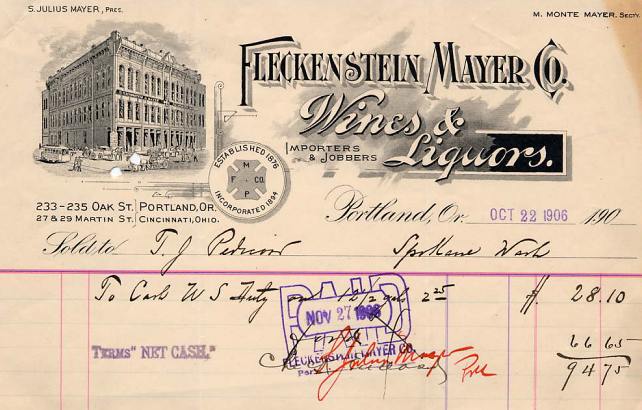 S. JULIUS MAYER, PRES.
M. MONTE MAYER. SECTY.
FLECKENSTEIN MAYER CO.
Wines &
Liquors.
IMPORTERS
& JOBBERS
ESTABLISHED 1876
M
F & CO.
P
INCORPORATED 1894
233-235 OAK ST. PORTLAND, OR.
27 & 29 MARTIN ST. CINCINNATI, OHIO.
Portland, Or. OCT 22 1906 190
Sold to T. J. Spokane Wash
To Cash W S 12 1/2 gals 2 25 $ 28.10
PAID
NOV 27 1906
FLECKENSTEIN MAYER CO.
Per
S Julius Mayer Pre
TERMS "NET CASH."
66 65
94 75